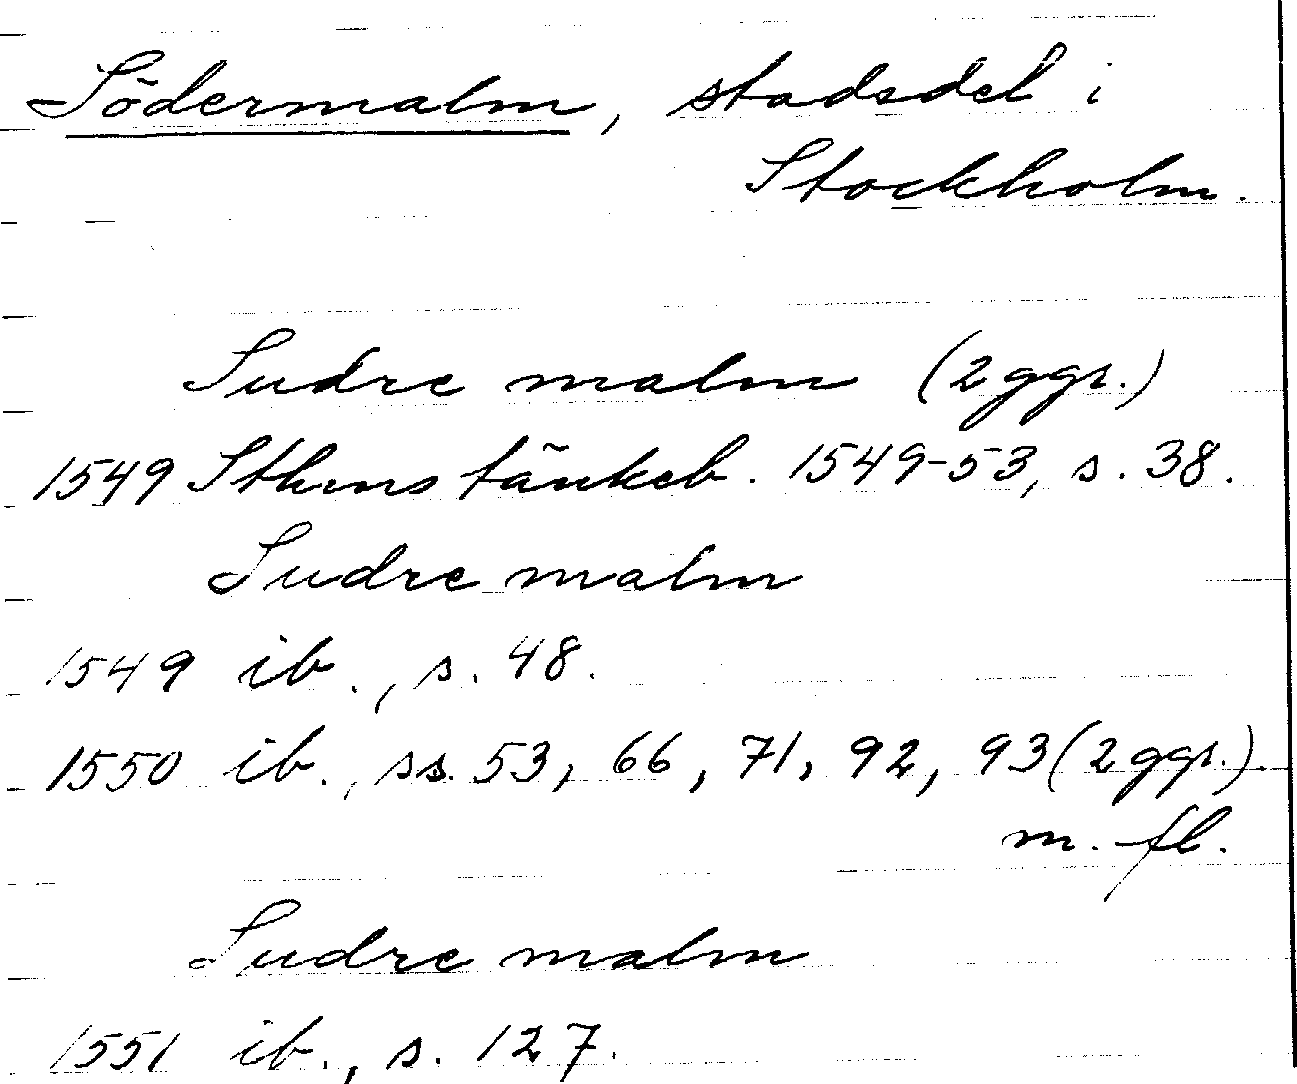 Södermalm, stadsdel i
Stockholm.
Sudre malm (2 ggr.)
1549 Sthms tänkeb. 1549-53, s. 38.
Sudre malm
1549 ib., s. 48.
1550 ib., ss. 53, 66, 71, 92, 93 (2 ggr.).
m. fl.
Sudre malm
1551 ib., s. 127.